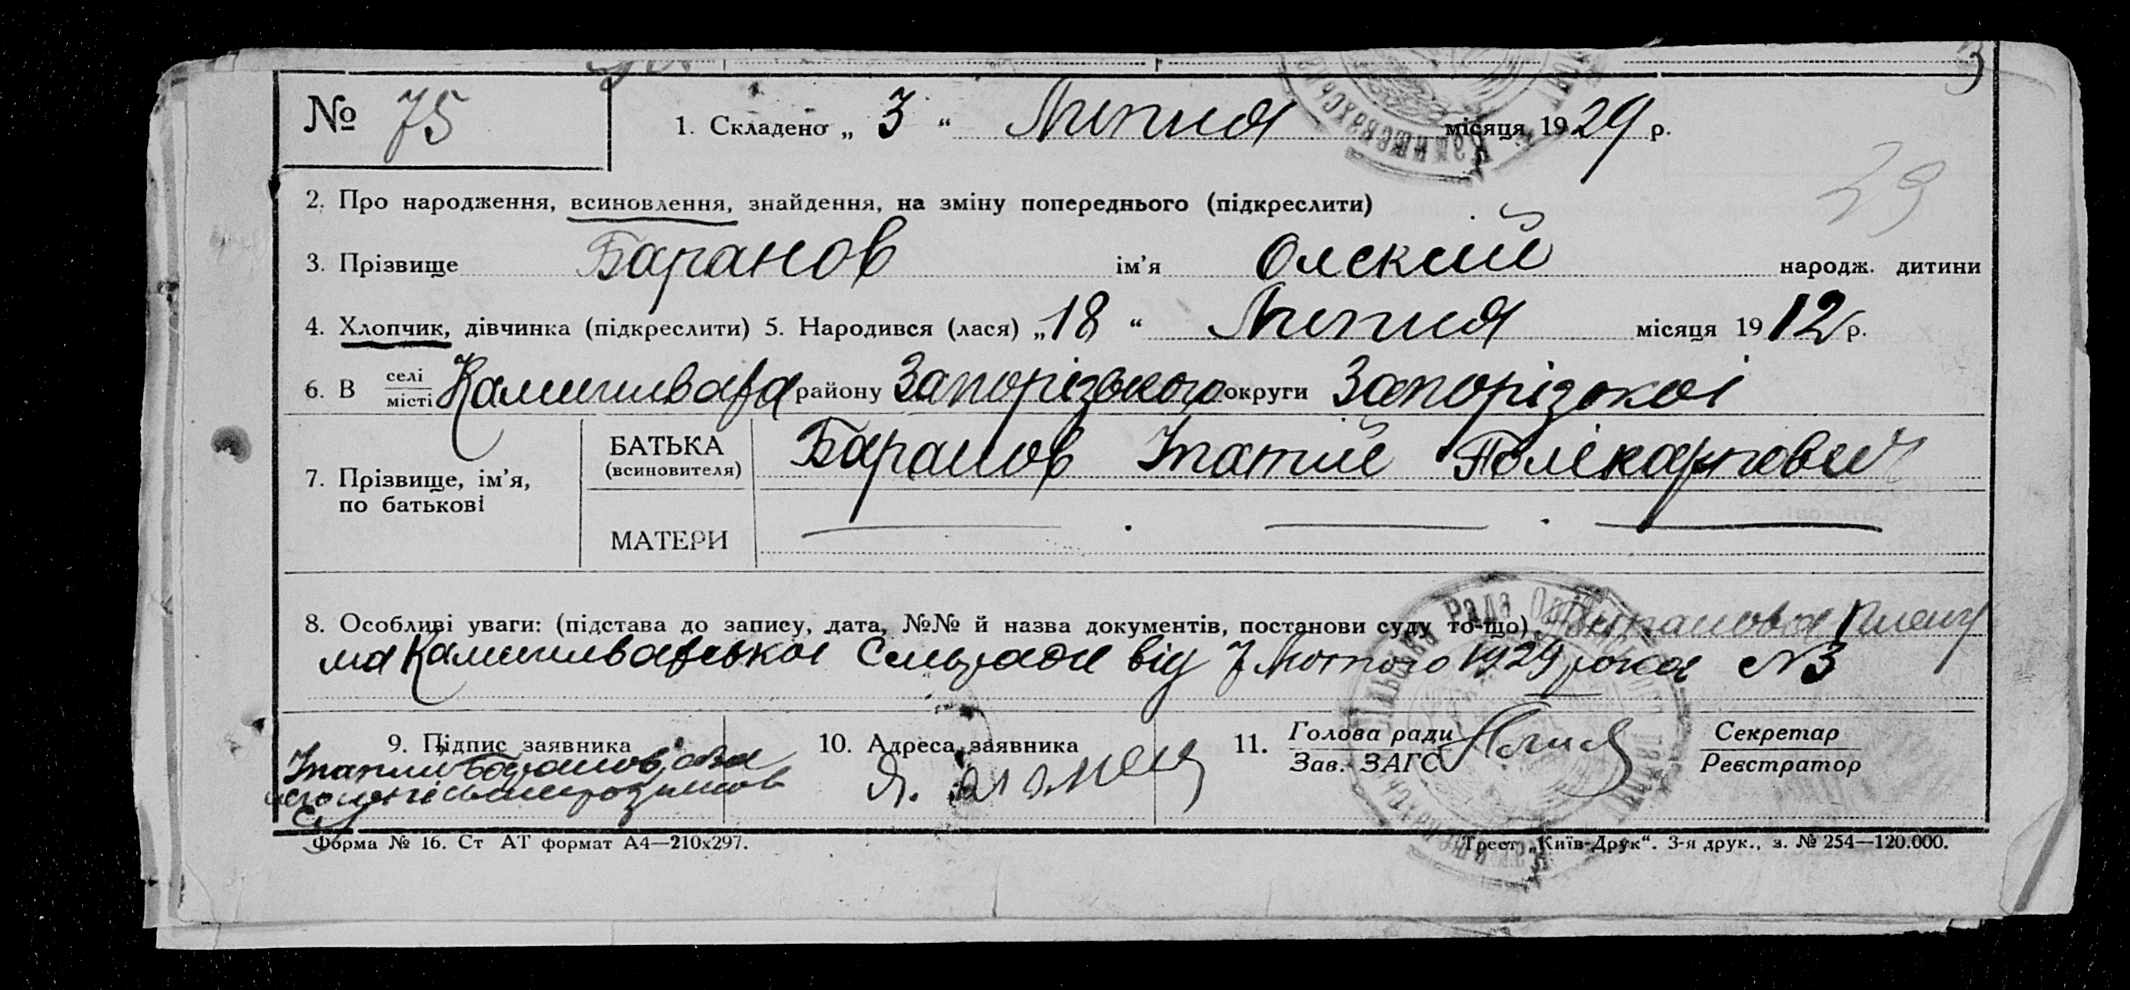 № 75
1. Складено „ 3 “ Липня місяця 1929 р.
29
2. Про народження, всиновлення, знайдення, на зміну попереднього (підкреслити)
3. Прізвище Баранов ім’я Олексій народж. дитини
4. Хлопчик, дівчинка (підкреслити) 5. Народився (лася) „ 18 “ Липня місяця 1912 р.
6. В селі місті Камишеваха району Запорізького округи Запорізької
7. Прізвище, ім’я, по батькові
БАТЬКА (всиновителя) Баранов Ігнатій Полікарпович
МАТЕРИ
8. Особливі уваги: (підстава до запису, дата, №№ й назва документів, постанови суду то-що) Постанова Плену
ма Камишеваської Сільради від 7 Лютого 1929 рока №3
9. Підпис заявника
10. Адреса заявника
11. Голова ради
Зав. ЗАГС
Секретар
Реєстратор
Форма № 16. Ст АТ формат А4—210х297.
Трест „Київ-Друк“. 3-я друк., з. № 254—120.000.